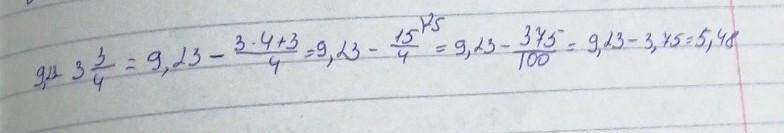 9,23 - 3 3/4 = 9,23 - (3·4+3)/4 = 9,23 - 15/4 ^(25 = 9,23 - 375/100 = 9,23 - 3,75 = 5,48